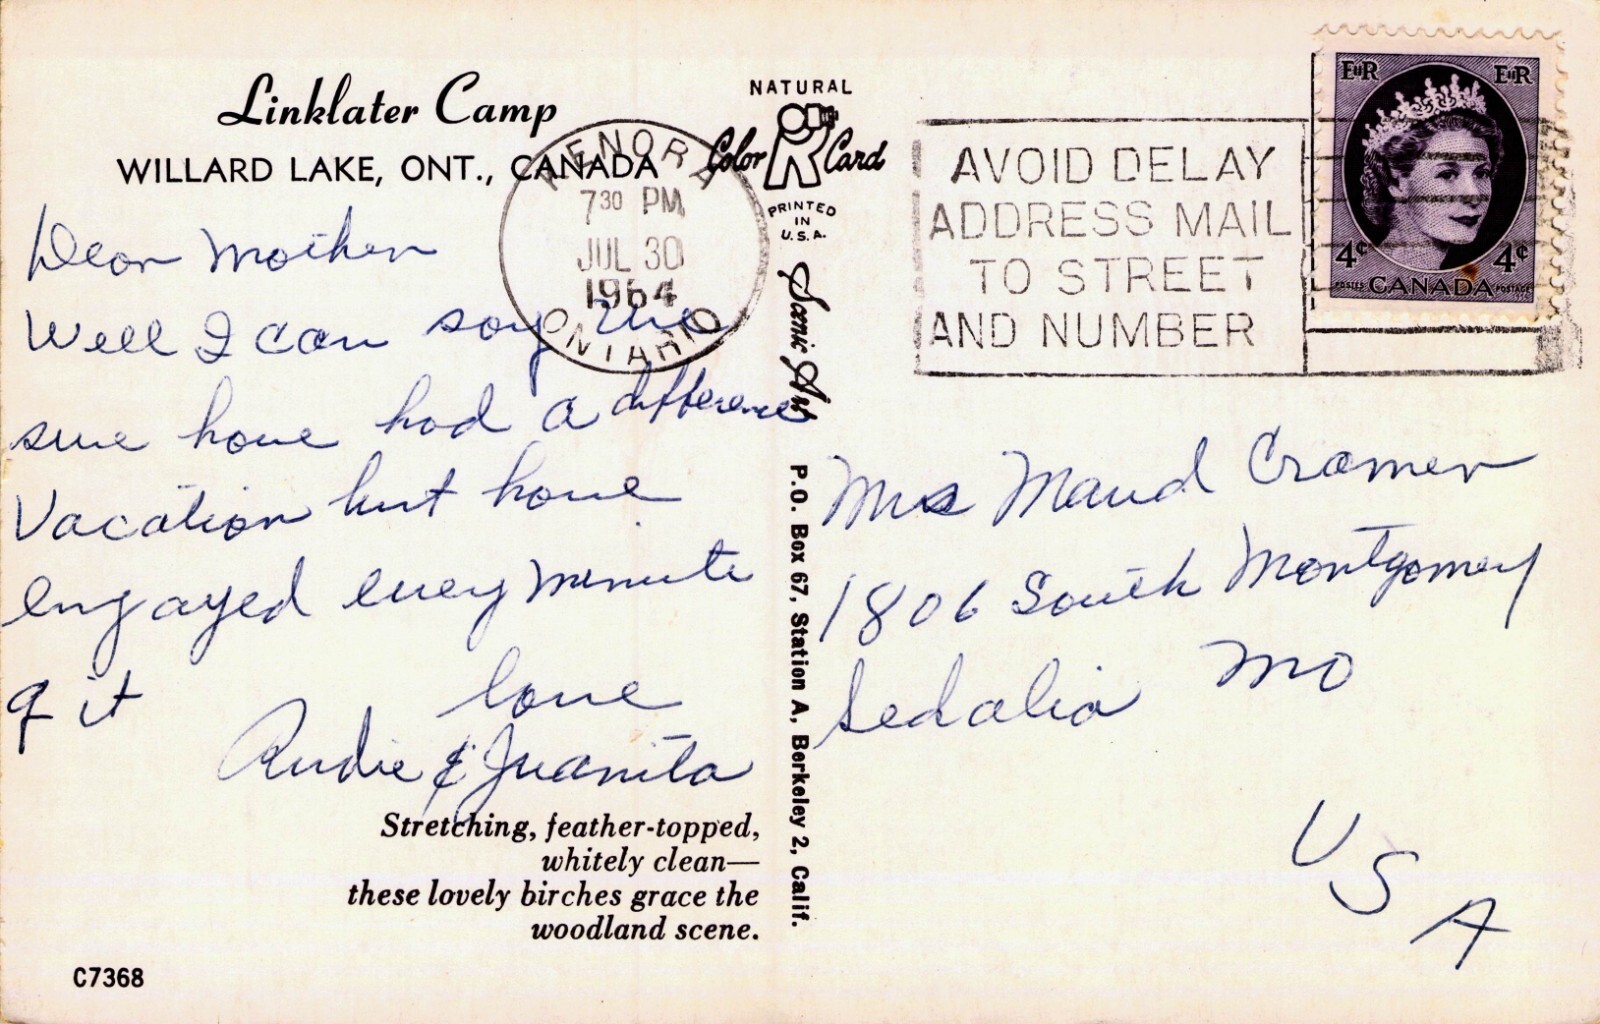 Linklater Camp
WILLARD LAKE, ONT., CANADA
KENORA
7 30 PM
JUL 30
1964
ONTARIO
NATURAL
Color Card
PRINTED
IN
U.S.A.
Scenic Art
P.O. Box 67, Station A, Berkeley 2, Calif.
AVOID DELAY
ADDRESS MAIL
TO STREET
AND NUMBER
EIIR EIIR
4¢ 4¢
POSTES CANADA POSTAGE
Dear Mother
Well I can say we
sure have had a difference
Vacation but have
engayed every minute
of it
love
Audie & Juanita
Stretching, feather-topped,
whitely clean—
these lovely birches grace the
woodland scene.
C7368
Mrs Maud Cramer
1806 South Montgomery
Sedalia Mo
USA